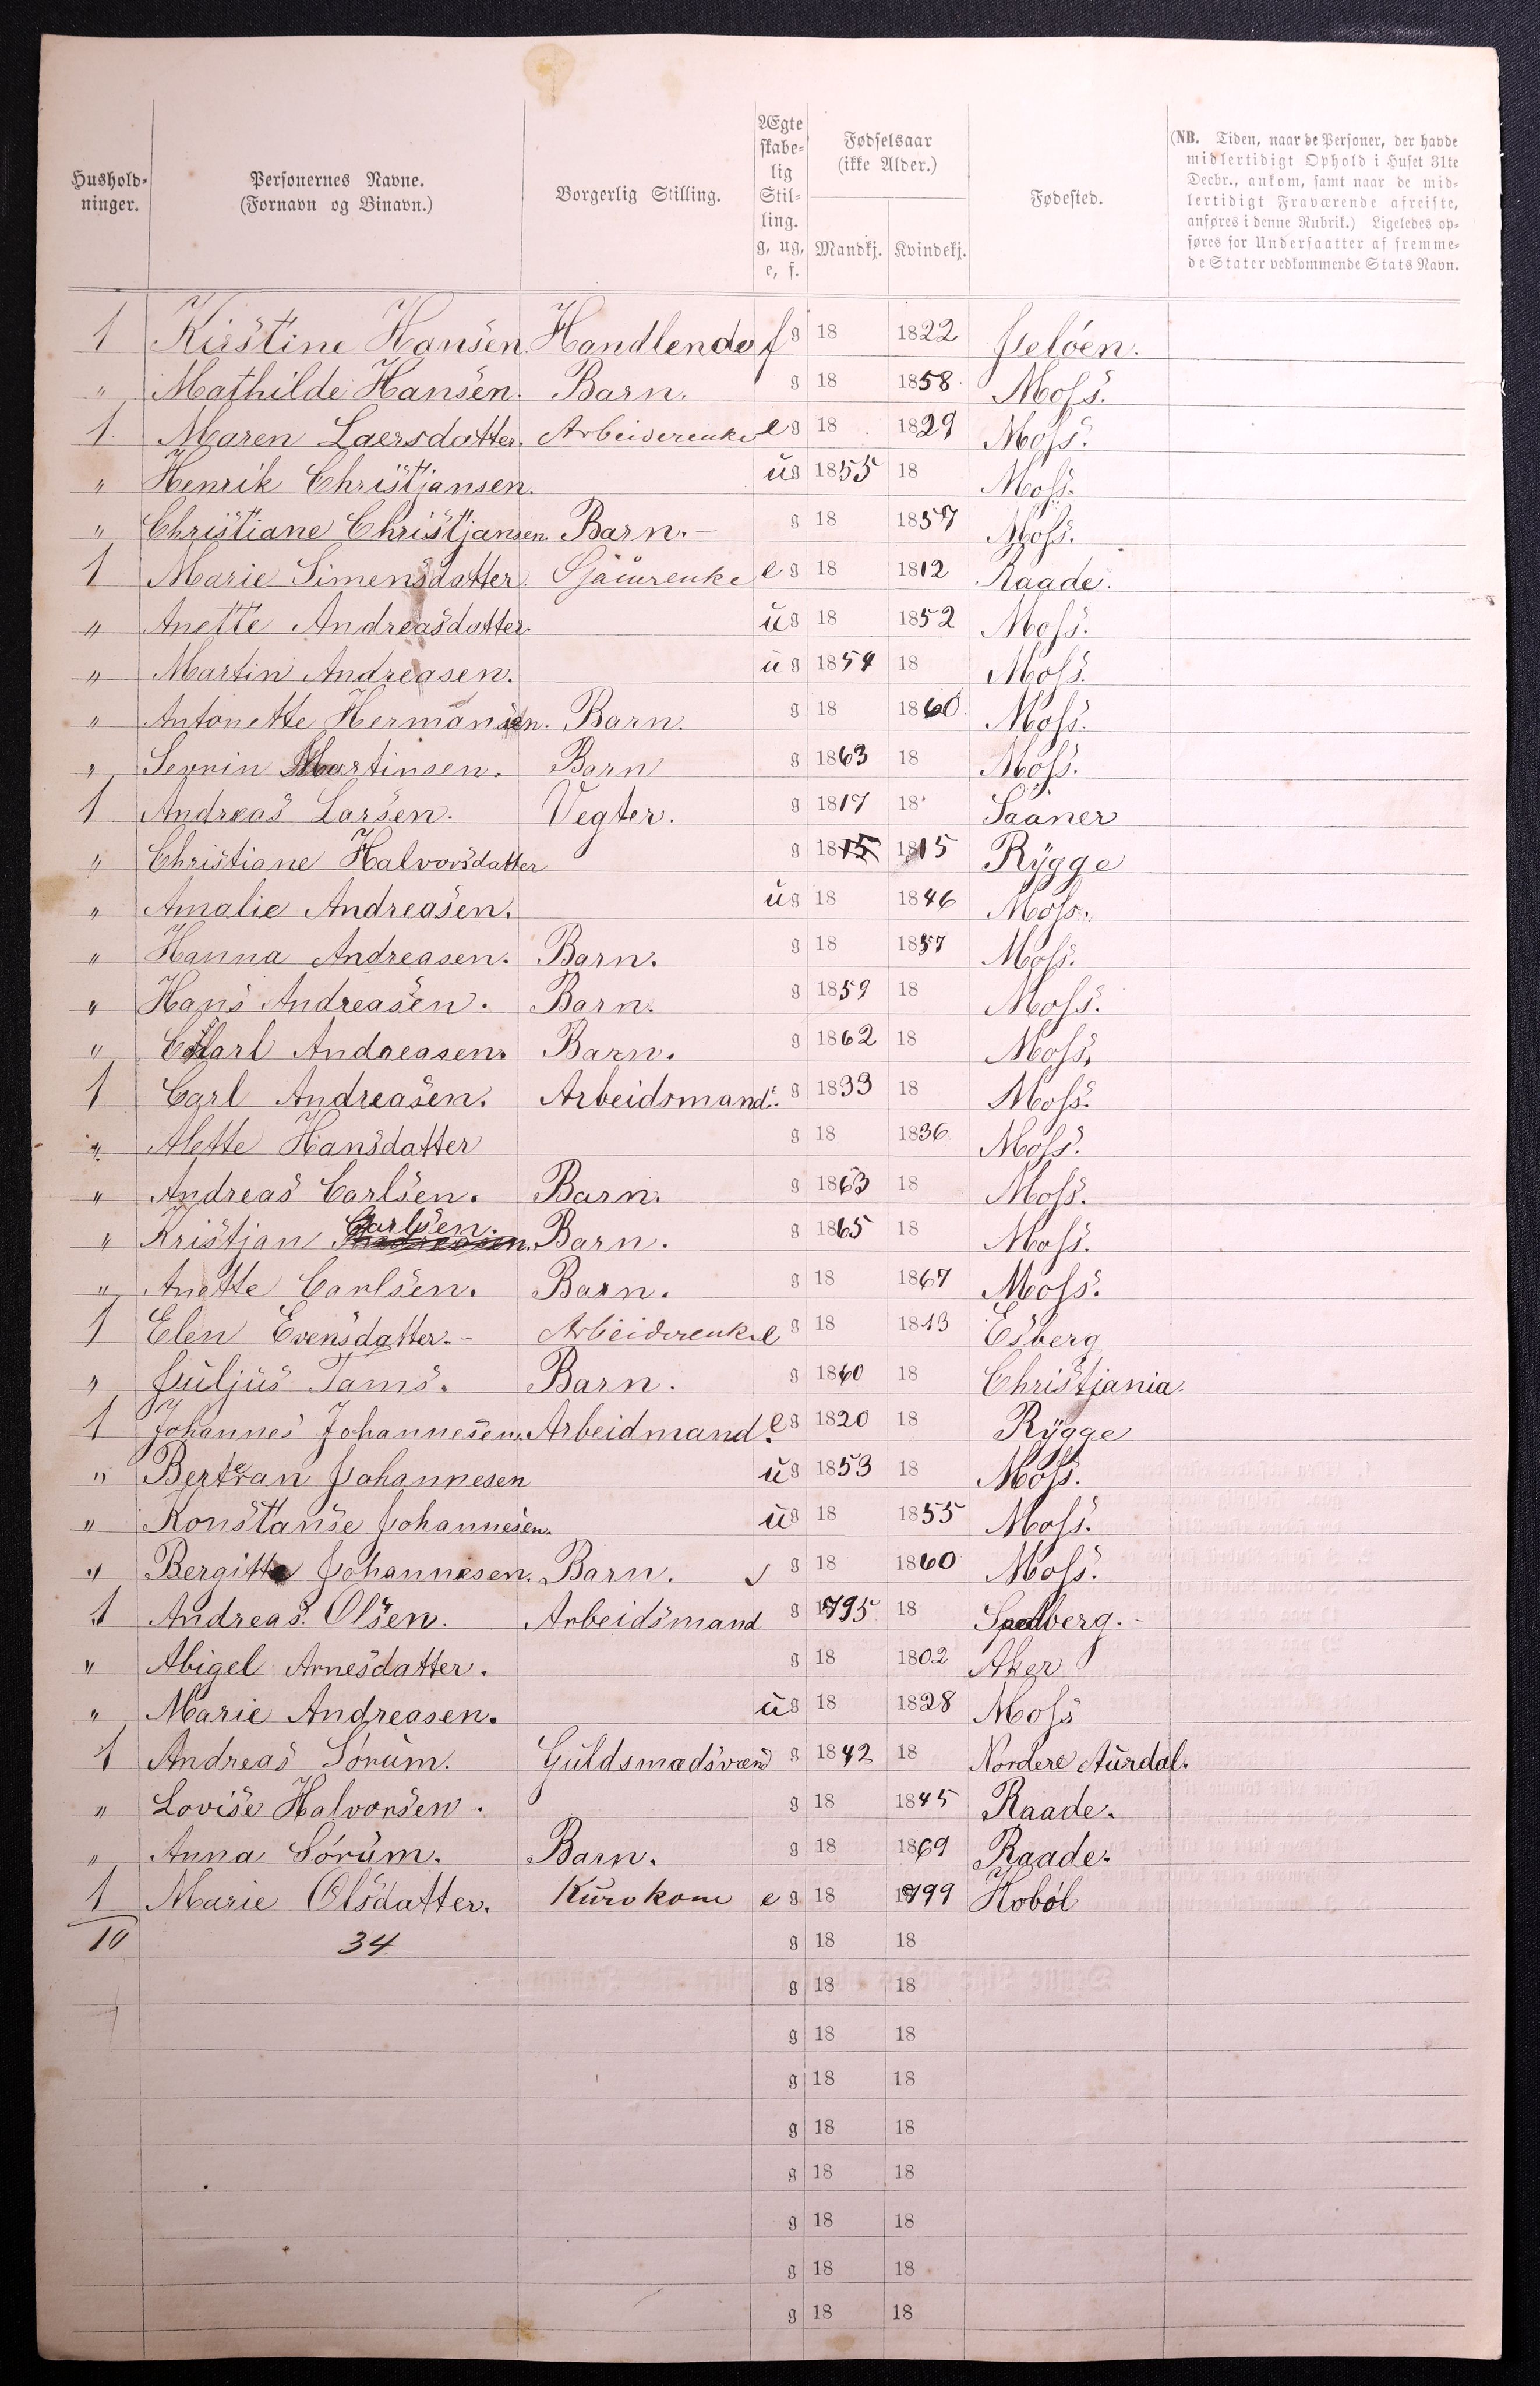 Hushold-ninger. Personernes Navne. (Fornavn og Binavn.) Borgerlig Stilling. Ægteskabe-lig Stil-ling. g, ug, e, f. Fødselsaar (ikke Alder.) Mandkj. Kvindekj. Fødested. (NB. Tiden, naar de Personer, der havde midlertidigt Ophold i Huset 31te Decbr., ankom, samt naar de mid-lertidigt Fraværende afreiste, anføres i denne Rubrik.) Ligeledes op-føres for Undersaatter af fremme-de Stater vedkommende Stats Navn.
1 Kirstine Hansen. Handlende f g 18 1822 Jeløen.
" Mathilde Hansen. Barn. g 18 1858. Moss.
1 Maren Laersdatter. Arbeiderenke e g 18 1829 Moss.
" Henrik Christjansen. ug 1855 18 Moss.
" Christiane Christjansen. Barn.- g 18 1857 Moss.
1 Marie Simensdatter. e g 18 1812 Raade.
" Anette Andreasdatter. ug 18 1852 Moss.
" Martin Andreasen. ug 1854 18 Moss.
" Antonette Hermansen. Barn. g 18 1860. Moss.
" Martinsen. Barn g 1863 18 Moss.
1 Andreas Larsen. Vegter. g 1817 18 Saaner
" Christiane Halvorsdatter g 1815 1815 Rygge
" Amalie Andreasen. ug 18 1846 Moss.
" Hanna Andreasen. Barn. g 18 1857 Moss.
" Hans Andreasen. Barn. g 1859 18 Moss.
" Andreasen. Barn. g 1862 18 Moss.
1 Carl Andreasen. Arbeidsmand. g 1833 18 Moss.
" Alette Hansdatter g 18 1836. Moss.
" Andreas Carlsen. Barn. g 1863 18 Moss.
" Kristjan Andreasen. Carlsen. Barn. g 1865 18 Moss.
" Anette Carlsen. Barn. g 18 1867 Moss.
1 Elen Evensdatter.- Arbeiderenke e g 18 1813 Esberg
" Juljus Tams. Barn. g 1860 18 Christjania.
1 Johannes Johannesen. Arbeidmand. e g 1820 18 Rygge
" Bertran Johannesen ug 1853 18 Moss.
" Konstanse Johannesen. ug 18 1855 Moss.
" Bergitte Johannesen. Barn. g 18 1860 Moss.
1 Andreas. Olsen. Arbeidsmand g 1795 18 Spedberg.-
" Abigel Arnesdatter. g 18 1802 Aker
" Marie Andreasen. ug 18 1828 Moss
1 Andreas Sørum. Guldsmedsvend g 1842 18 Nordere Aurdal.
" Lovise Halvorsen. g 18 1845 Raade.
" Anna Sørum. Barn. g 18 1869 Raade.
1 Marie Olsdatter. e g 18 1799 Hobøl
10 34 g 18 18
g 18 18
g 18 18
g 18 18
g 18 18
g 18 18
g 18 18
g 18 18
g 18 18